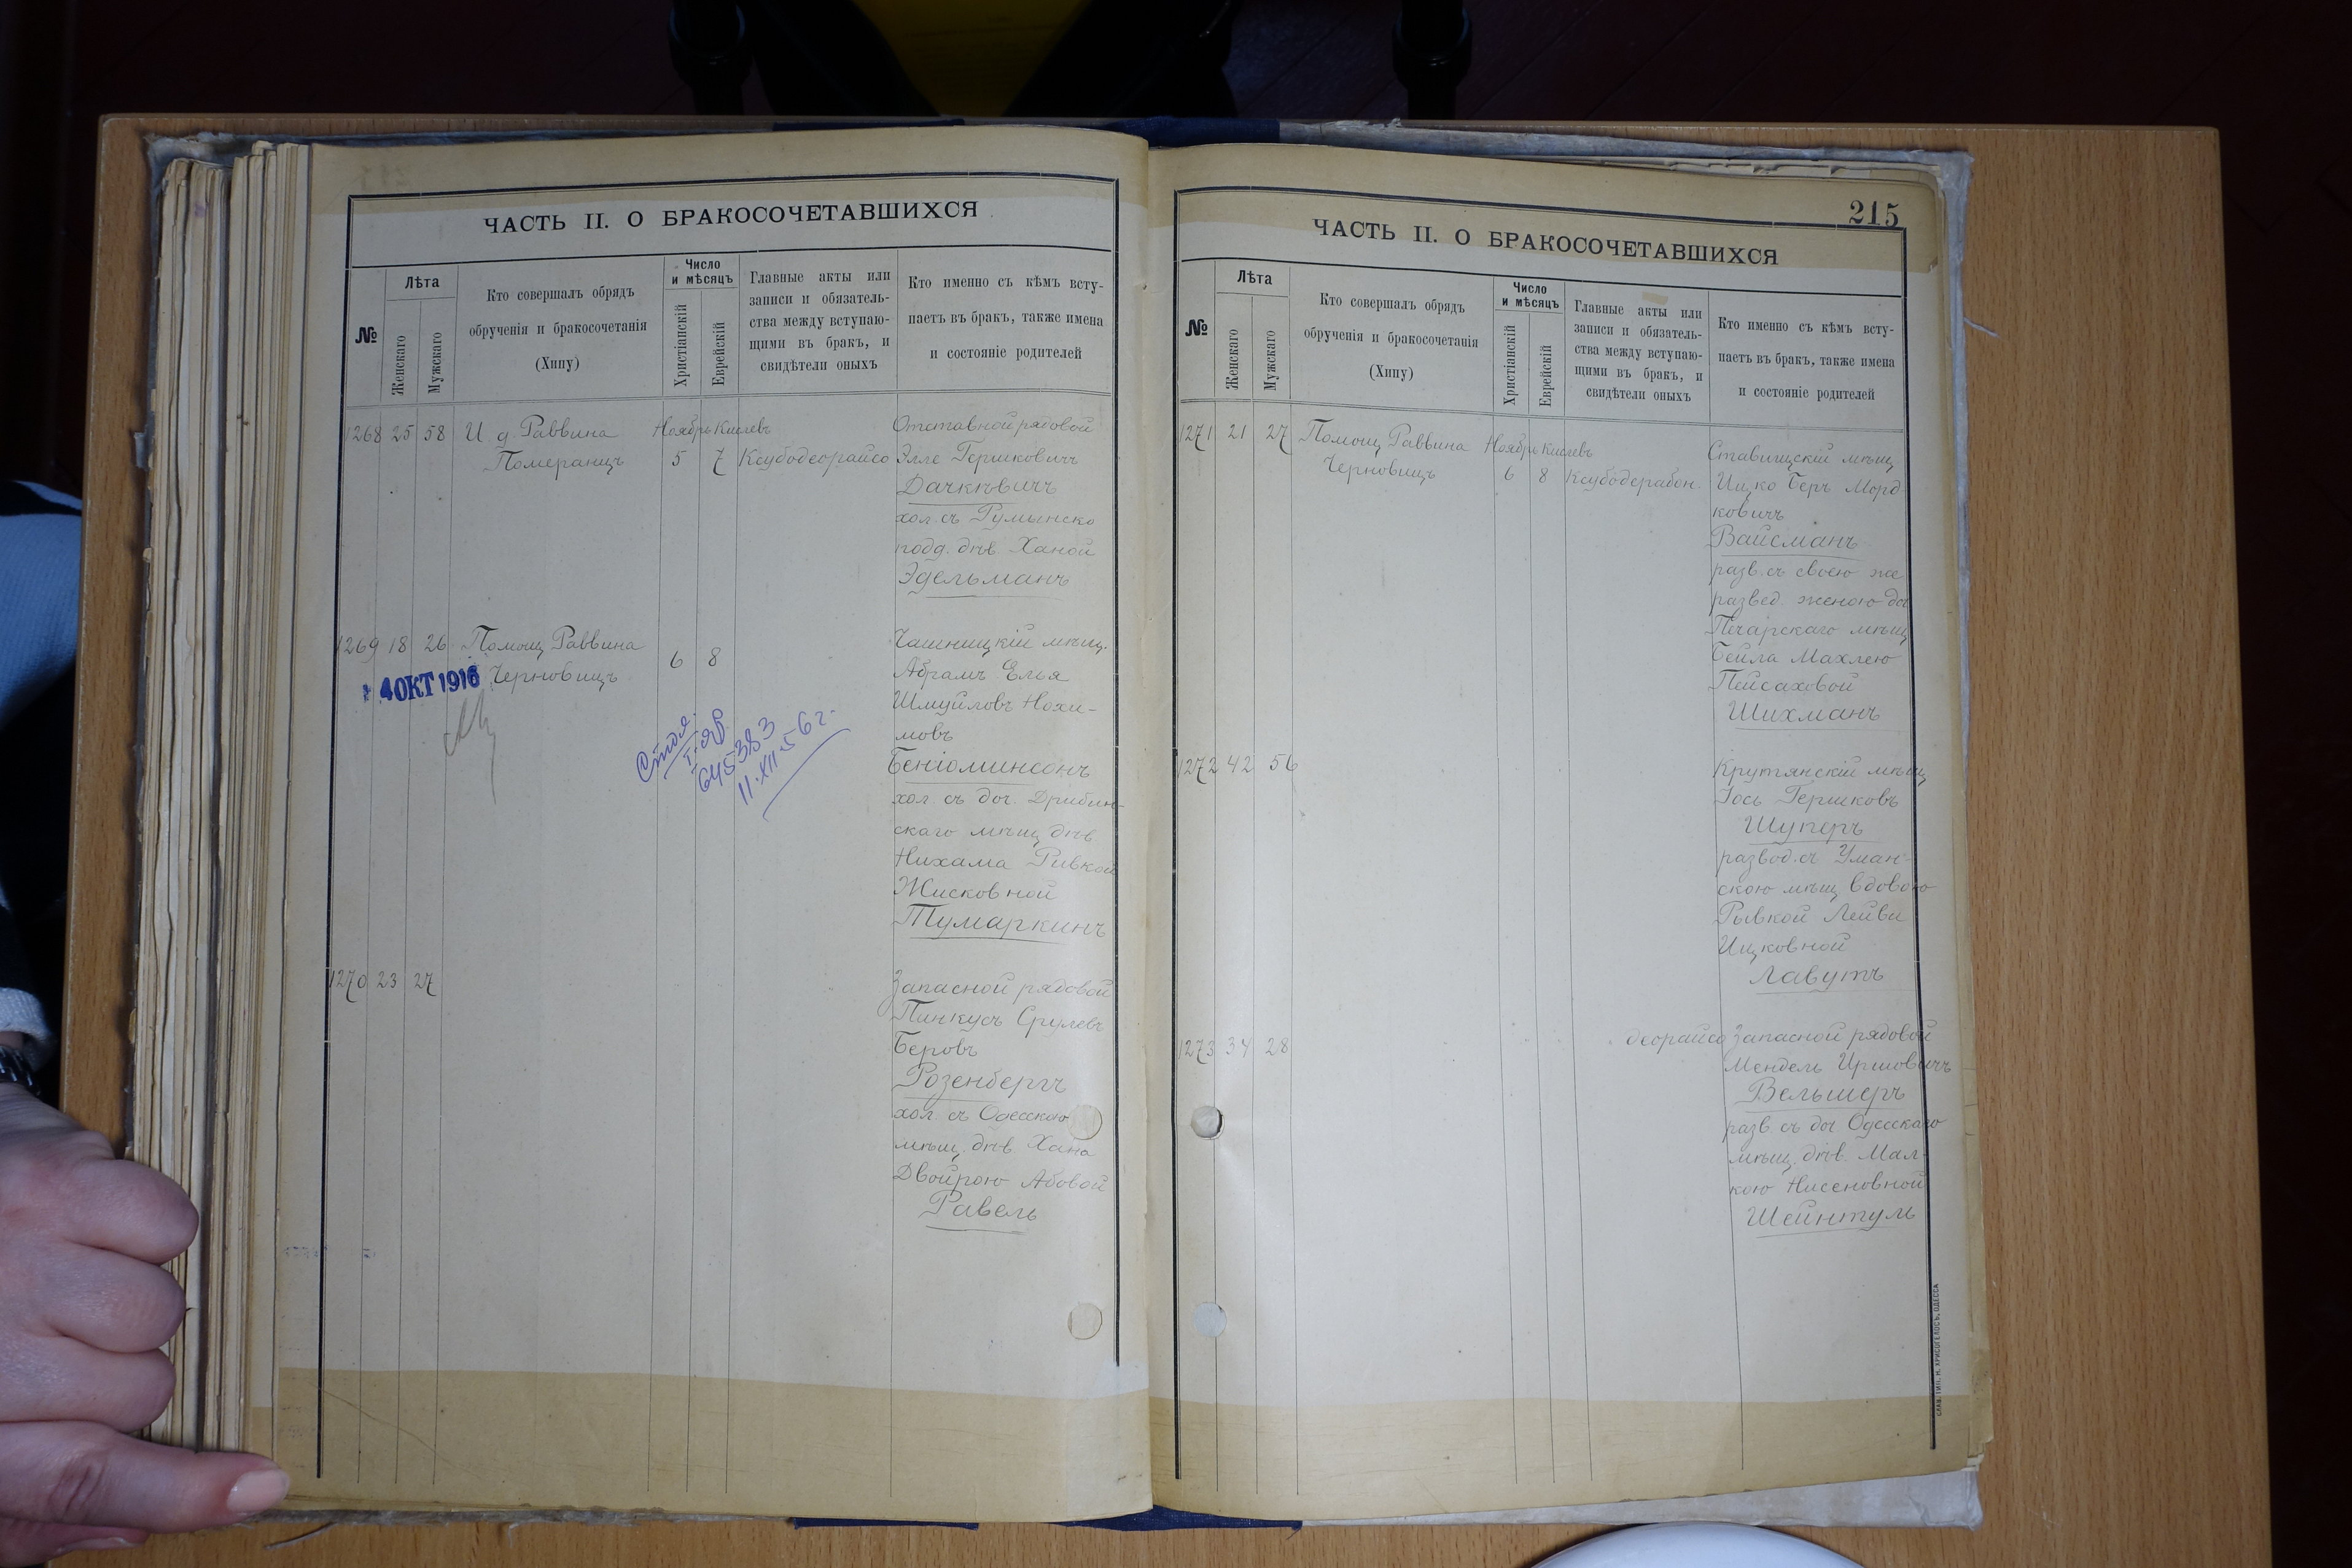 ЧАСТЬ II. О БРАКОСОЧЕТАВШИХСЯ
№
Лѣта
Женскаго
Мужскаго
Кто совершалъ обрядъ
обрученія и бракосочетанія
(Хипу)
Число
и мѣсяцъ
Христіанскій
Еврейскій
Главные акты или
записи и обязатель-
ства между вступаю-
щими въ бракъ, и
свидѣтели оныхъ
Кто именно съ кѣмъ всту-
паетъ въ бракъ, также имена
и состояніе родителей
1268 25 58 И. д. Раввина
Померанцъ
Ноябрь Кислевъ
5 7 Ксубодеорайсо
Отставной рядовой
Элле Гершковичъ
Дачкѣвичъ
хол. съ Румынско
подд. дѣв Ханой
Эдельманъ
1269 18 26 Помощ Раввина
Черновицъ
6 8
4 ОКТ 1916
645383
11.XII-56 г.
Чашницкій мѣщ.
Абрамъ Елья
Шмуйловъ Нохи-
мовъ
Беніоминсонъ
хол. съ доч. Дрибин-
скаго мѣщ дѣв
Нихама Ривкой
Жисковной
Тумаркинъ
1270 23 27
Запасной рядовой
Пинкусъ Срулевъ
Беровъ
Розенбергъ
хол. съ Одесскою
мѣщ. дѣв Хана
Двойрою Абовой
Равель
215
ЧАСТЬ II. О БРАКОСОЧЕТАВШИХСЯ
№
Лѣта
Женскаго
Мужскаго
Кто совершалъ обрядъ
обрученія и бракосочетанія
(Хипу)
Число
и мѣсяцъ
Христіанскій
Еврейскій
Главные акты или
записи и обязатель-
ства между вступаю-
щими въ бракъ, и
свидѣтели оныхъ
Кто именно съ кѣмъ всту-
паетъ въ бракъ, также имена
и состояніе родителей
1271 21 27 Помощ Раввина
Черновицъ
Ноябрь Кислевъ
6 8 Ксубодерабон.
Ставищскій мѣщ
Ицко Беръ Морд-
ковичъ
Вайсманъ
разв. съ своею же
развед. женою доч
Печарскаго мѣщ
Бейла Махлею
Пейсаховой
Шихманъ
1272 42 56
Крутянскій мѣщ
Іось Гершковъ
Шуперъ
развод. съ Уман-
скою мѣщ вдовою
Рывкой Лейви
Ицковной
Лавутъ
1273 34 28
деорайсо
Запасной рядовой
Мендель Иршовичъ
Вельшеръ
разв. съ доч Одесскаго
мѣщ. дѣв. Мал-
кою Нисеновной
Шейнтуль
СЛАВ. ТИП. Н. ХРИСОГЕЛОСЪ, ОДЕССА